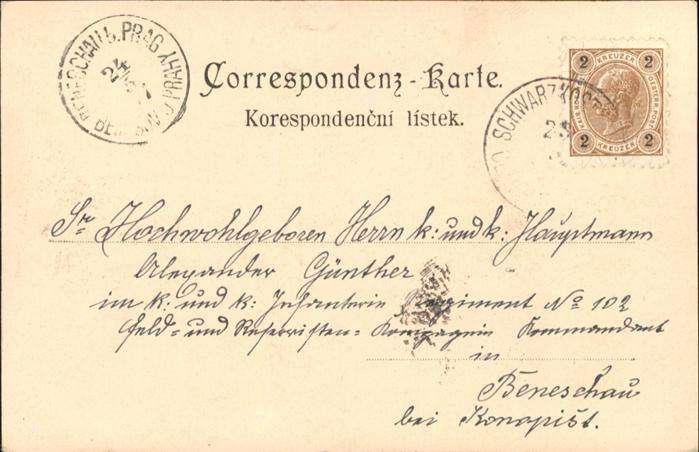 BENESCHAU b. PRAG
24
7
Correspondenz-Karte.
Korespondenční lístek.
2 KREUZER 2
2 KREUZER 2
SCHWARZKOST
Sr Hochwohlgeboren Herrn k: und k: Hauptmann
Alexander Günther
im k: und k: Infanterie Regiment No 102
Feld- und Reservisten- Kompagnie Kommandant
in
Beneschau
bei Konopišt.